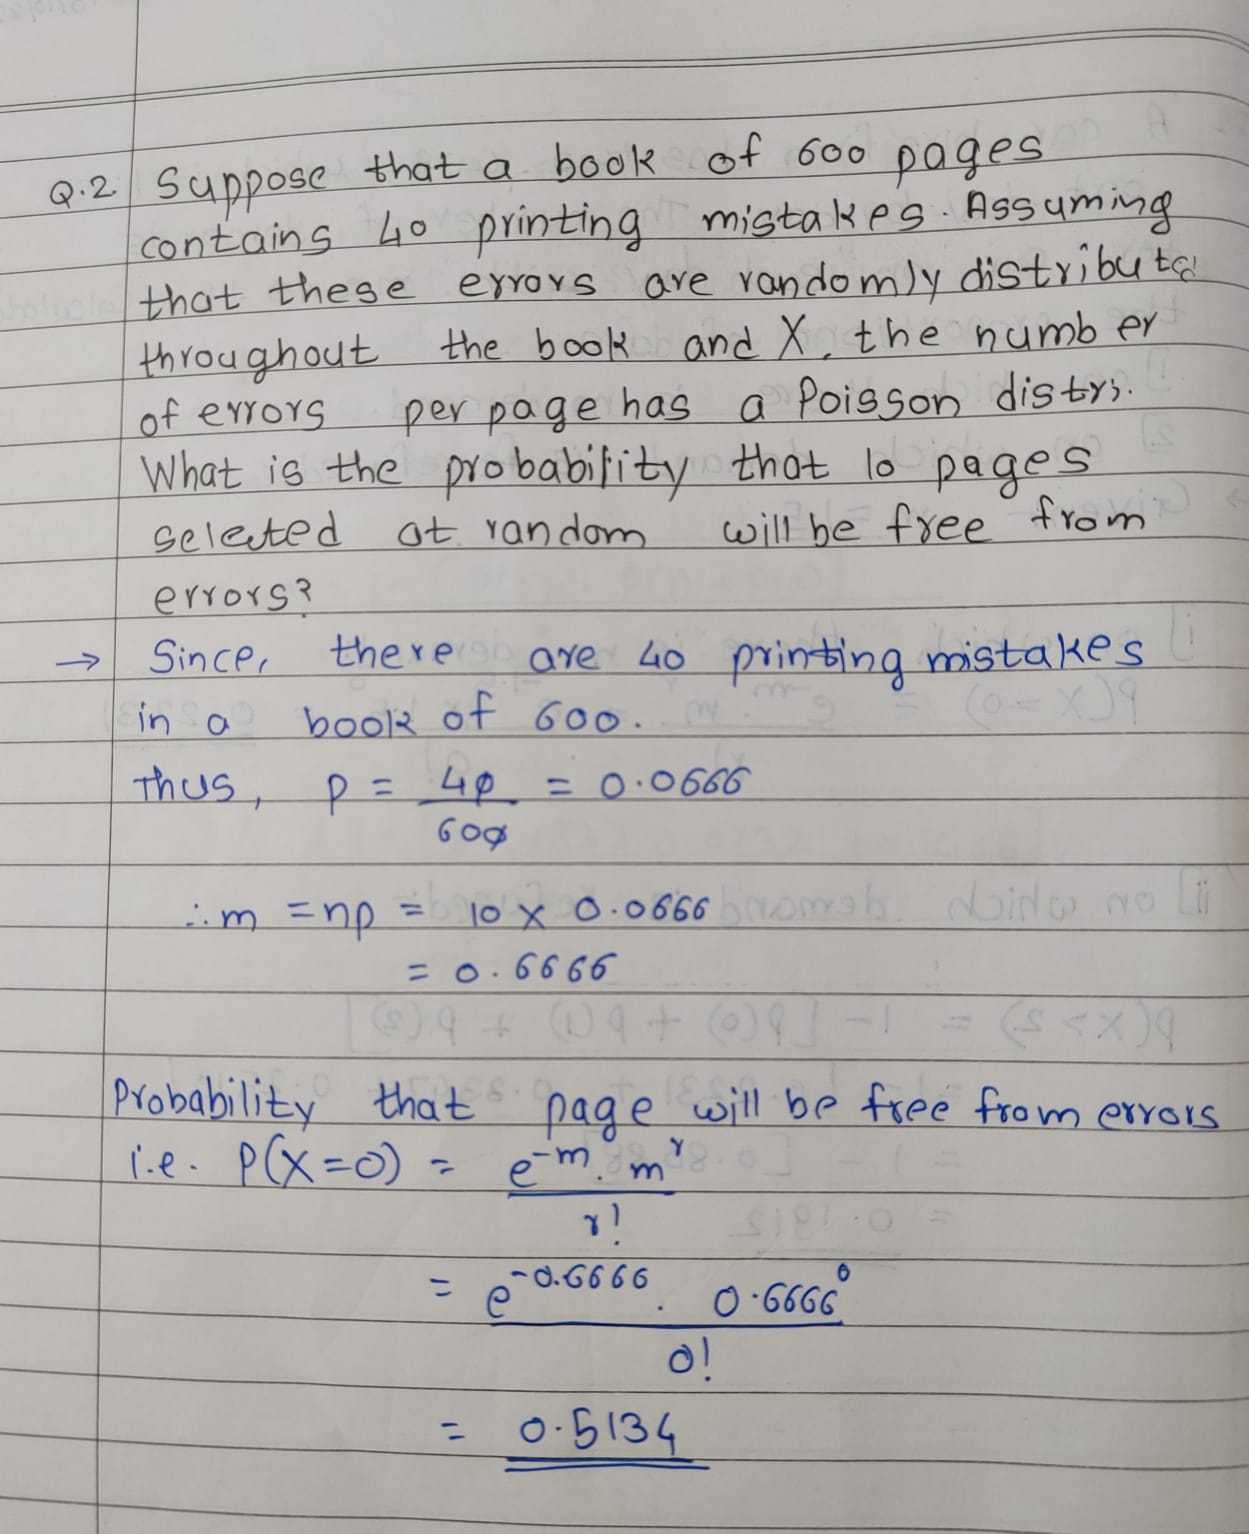 Q.2 Suppose that a book of 600 pages
contains 40 printing mistakes. Assuming
that these errors are randomly distributed
throughout the book and X, the number
of errors per page has a Poisson distri.
What is the probability that 10 pages
seleted at random will be free from
errors?
→ Since, there are 40 printing mistakes
in a book of 600.
Thus, p = 40/600 = 0.0666
∴ m = np = 10 × 0.0666
= 0.6666
Probability that page will be free from errors
i.e. P(X=0) = e^-m . m^r / r!
= e^-0.6666 . 0.6666^0 / 0!
= 0.5134